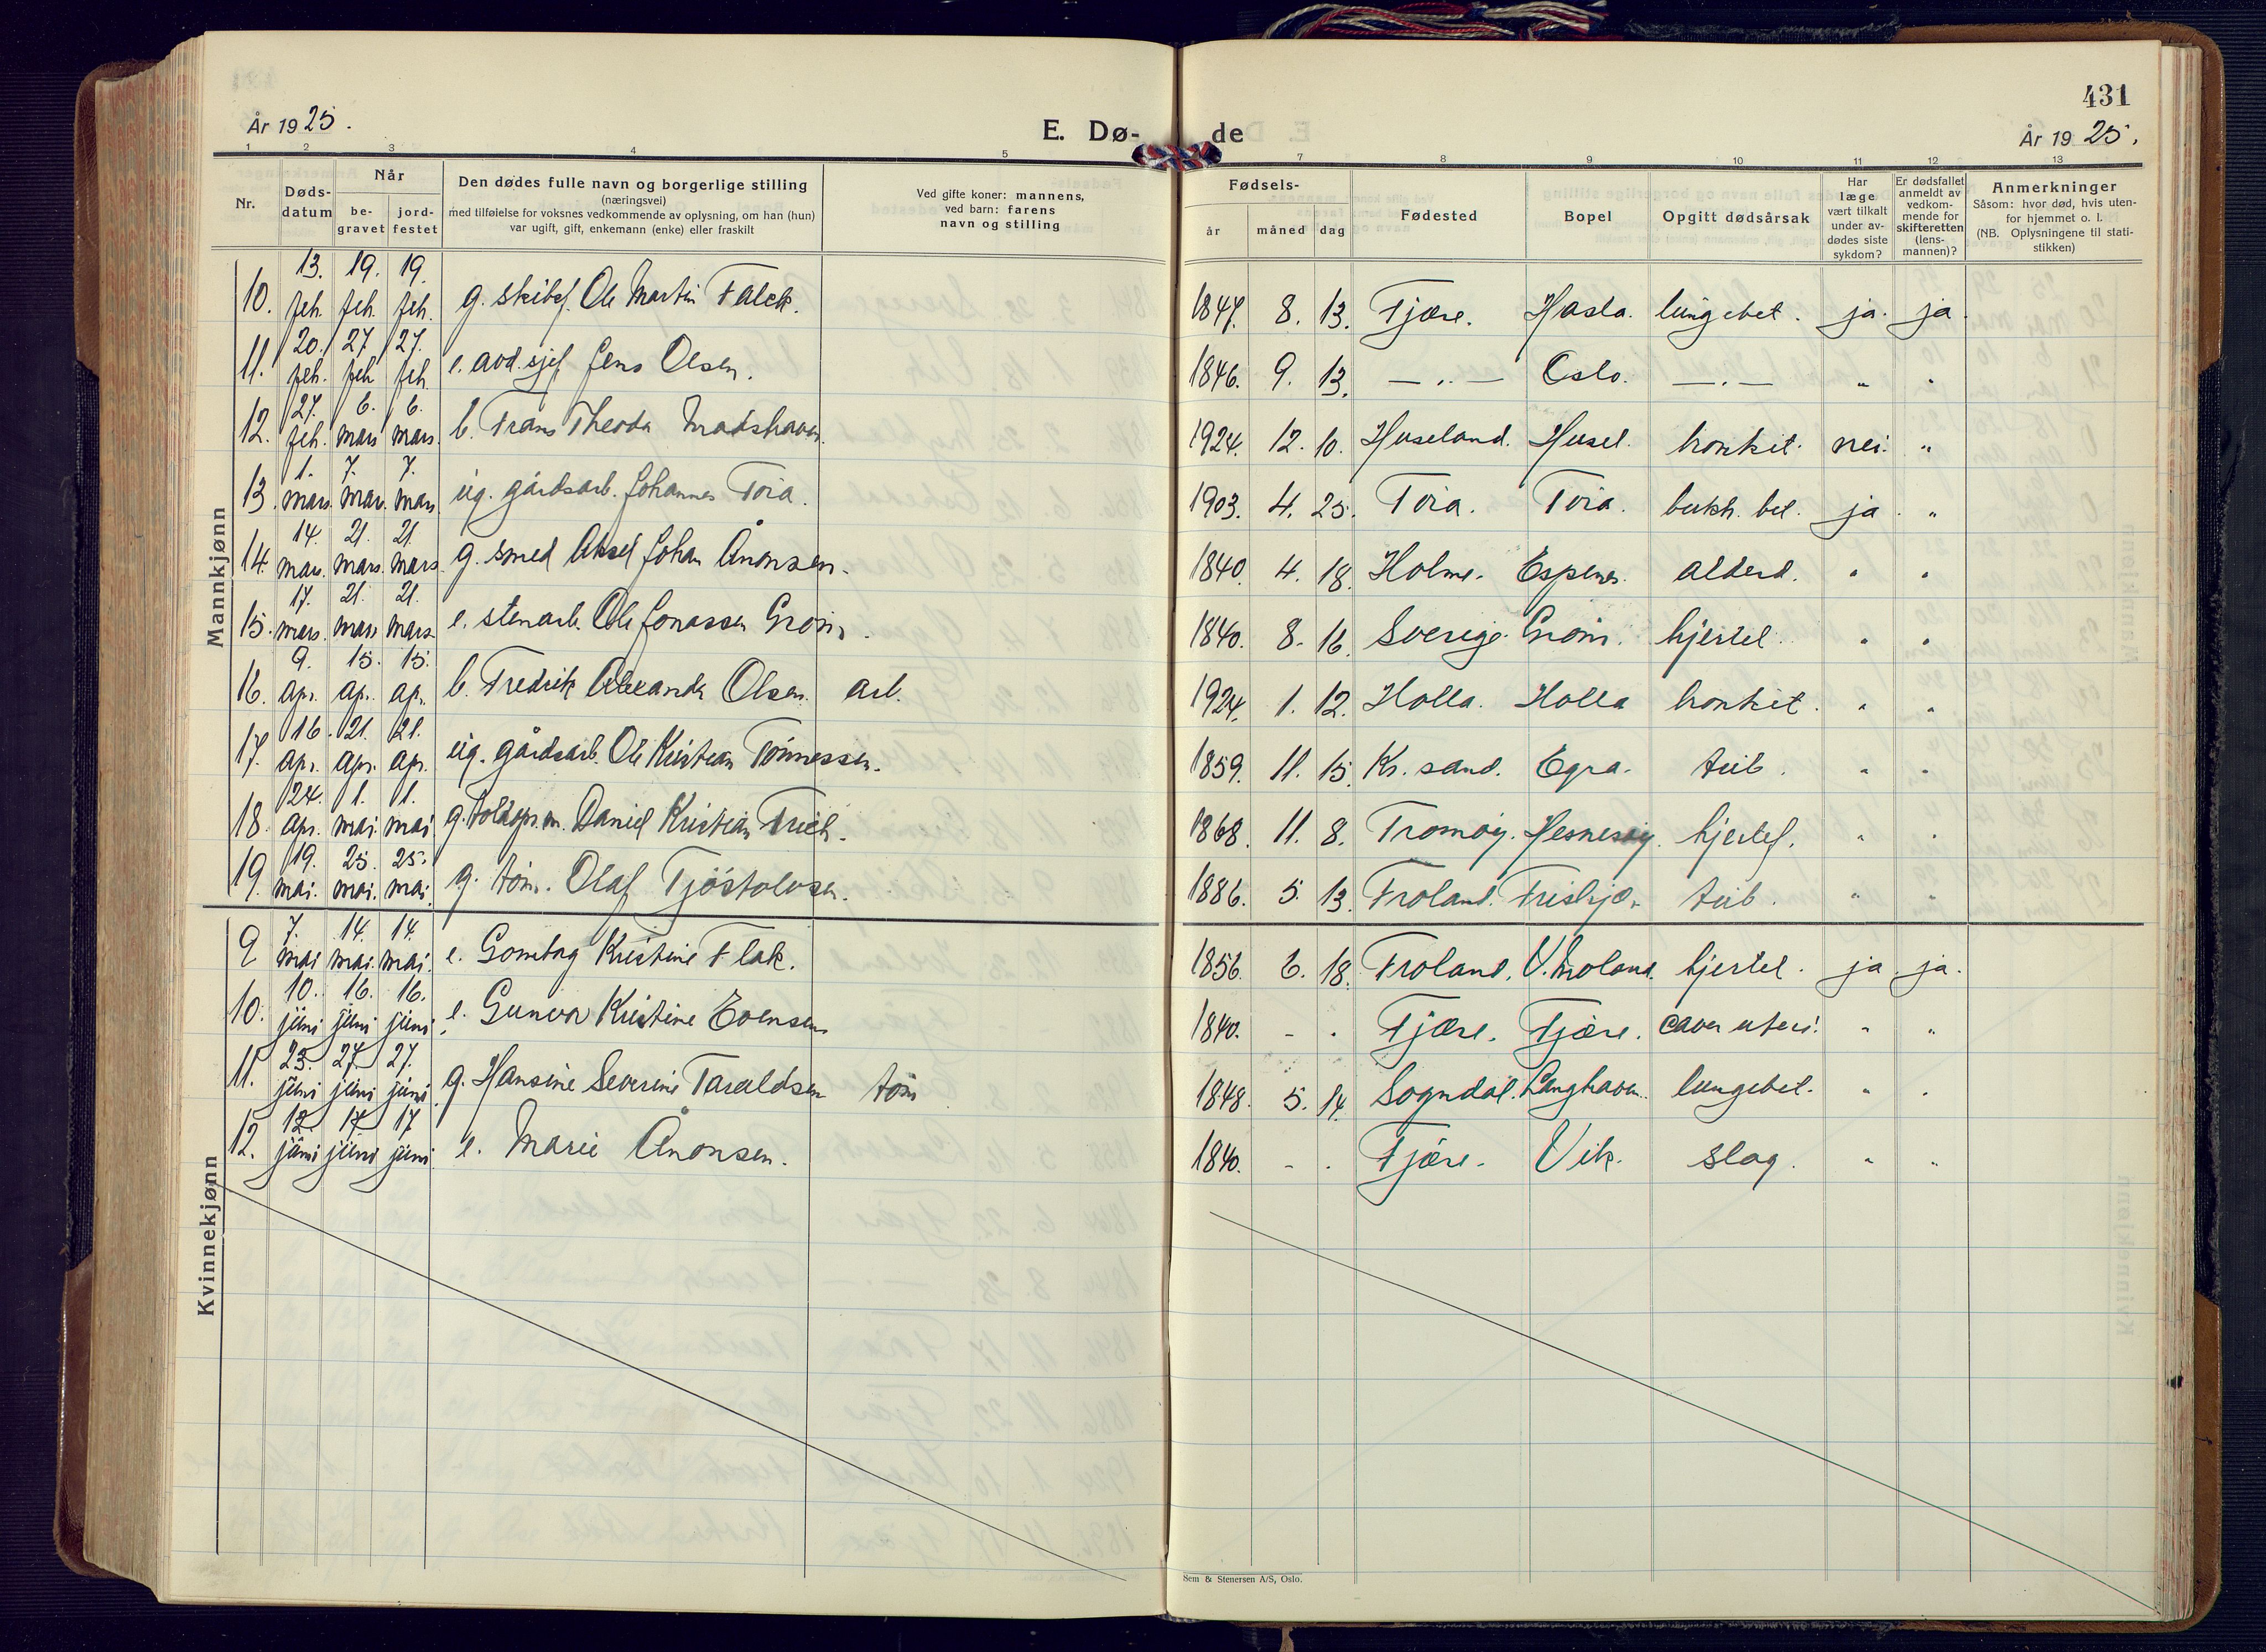 431
År 1925.
E. Dø-de
År 1925.
1 2 3 4 5 7 8 9 10 11 12 13
Nr.
Døds-datum
Når
be-gravet
jord-festet
Den dødes fulle navn og borgerlige stilling
(næringsvei)
med tilføielse for voksnes vedkommende av oplysning, om han (hun)
var ugift, gift, enkemann (enke) eller fraskilt
Ved gifte koner: mannens,
ved barn: farens
navn og stilling
Fødsels-
år måned dag
Fødested
Bopel
Opgitt dødsårsak
Har
læge
vært tilkalt
under av-
dødes siste
sykdom?
Er dødsfallet
anmeldt av
vedkom-
mende for
skifteretten
(lens-
mannen)?
Anmerkninger
Såsom: hvor død, hvis uten-
for hjemmet o. l.
(NB. Oplysningene til stati-
stikken)
Mannkjønn
10. 13. feb. 19. feb. 19. feb. g. skibsf. Ole Martin Falck. 1847. 8. 13. Fjære. Hasla. lungebet. ja. ja.
11. 20. feb. 27 feb. 27. feb. e. avd. sjef Jens Olsen. 1846. 9. 13. — „ — Oslo. — „ — „ „
12. 27. feb. 6. mars 6. mars. b. Frans Theodor Madshaven. 1924. 12. 10. Huseland. Husel. bronkit. nei. „
13. 1. mars. 7. mars. 7. mars ug. gårdsarb. Johannes Toia. 1903. 4. 25. Toia. Toia. bukh. bet. ja. „
14. 14. mars. 21. mars. 21. mars. g. smed Aksel Johan Ånonsen. 1840. 4. 18. Holme. Espenes. alderd. „ „
15. 17. mars. 21. mars 21. mars. e. stenarb. Ole Jonassen Grøm. 1840. 8. 16. Sverige. Grøm. hjertel. „ „
16. 9. apr. 15. ap. 15. ap. b. Fredrik Alexander Olsen. arb. 1924. 1. 12. Holla. Holla bronkit. „ „
17. 16. apr. 21. apr. 21. apr. ug. gårdsarb. Ole Kristian Tønnessen. 1859. 11. 15. Kr. sand. Egra. tub. „ „
18. 24. apr. 1. mai. 1. mai g. toldops.m. Daniel Kristian Frich. 1868. 11. 8. Tromøy. Hesnesøy. hjertef. „ „
19. 19. mai. 25. mai. 25. mai. g. tøm. Olaf Tjøstolvsen. 1886. 5. 13. Froland. tub. „ „
Kvinnekjønn
9 7. mai 14. mai. 14. mai. e. Gomborg Kristine Flak. 1856. 6. 18. Froland. V. Moland. hjertel. ja ja.
10. 10. juni 16. juni 16. juni. e. Gunvor Kristine Evensen 1840. - . Fjære. Fjære. uteri. „ „
11. 23. juni 27. juni 27. juni. g. Hansine Severine Taraldsen tøm 1848. 5. 14. Sogndal. Langhaven. lungebet. „ „
12. 12. juni 17 juni 17 juni e. Marie Ånonsen. 1840. - . Fjære. Vik. slag. „ „
Sem & Stenersen A/S, Oslo.